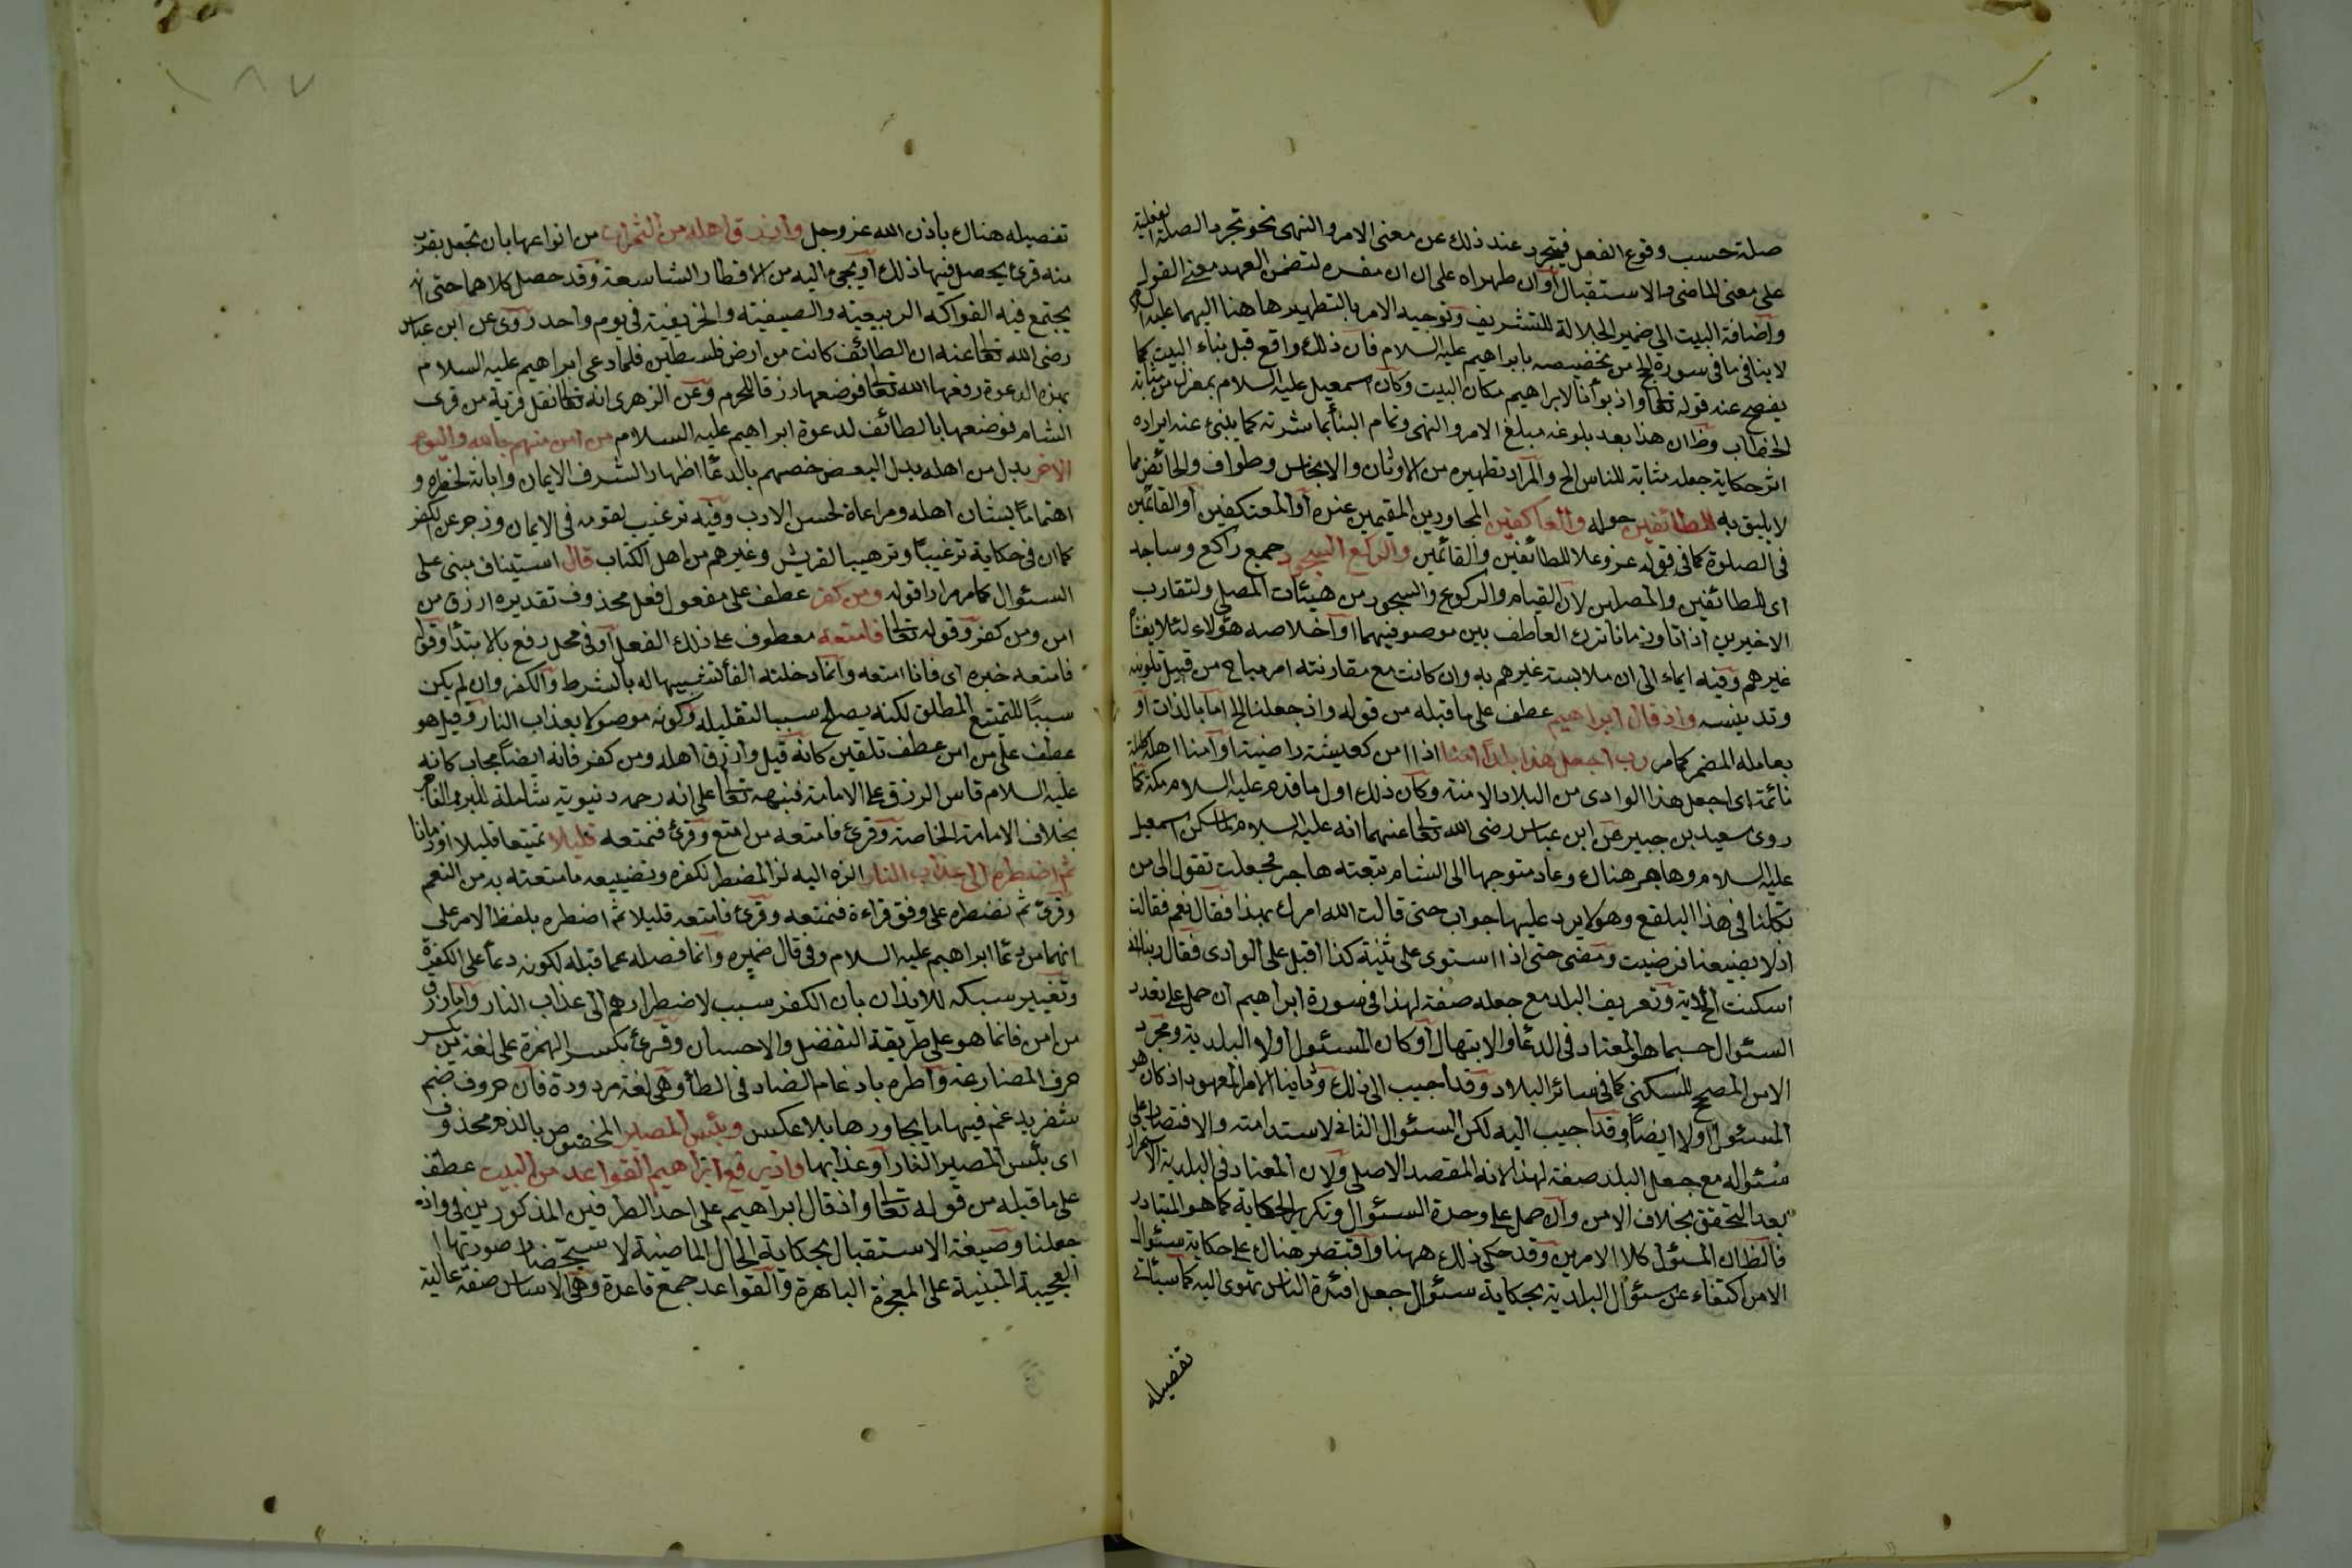 صلة حسب وقوع الفعل فيتجرد عند ذلك عن معنى الامر والنهى نحو تجرد الصلة الفعلية
على معنى الماضى والاستقبال أو ان طهراه على ان ان مفسره لتضمن العهد معنى القول
واضافة البيت الى ضمير الجلالة للتشريف وتوجيه الامر بالتطهير هاهنا اليهما عليهما
لا ينافى ما فى سورة الحج من تخصيصه بابراهيم عليه السلام فان ذلك واقع قبل بناء البيت كما
يفصح عنه قوله تعالى واذ بوأنا لابراهيم مكان البيت وكان اسمعيل عليه السلام بمعزل من مثابة
الخطاب وظ ان هذا بعد بلوغه مبلغ الامر والنهى وتمام البنأ بمباشرته كما ينبئ عنه ايراده
اثر حكاية جعله مثابة للناس الخ والمراد تطهيره من الاوثان والانجاس وطواف والحائض مما
لا يليق به للطائفين حوله والعاكفين المجاورين المقيمين عنده أو المعتكفين أو القائمين
فى الصلوة كما فى قوله عز وعلا للطائفين والقائمين والركع السجود جمع راكع وساجد
اى للطائفين والمصلين لان القيام والركوع والسجود من هيئات المصلى ولتقارب
الاخيرين ذاتا وزمانا ترك العاطف بين موصوفيهما او اخلاصه لهؤلاء لئلا يغشاه
غيرهم وفيه ايماء الى ان ملابسة غيرهم به وان كانت مع مقارنته امر مباح من قبيل تلويثه
وتدنيسه واذ قال ابراهيم عطف على ما قبله من قوله واذ جعلنا الخ اما بالذات او
بعامله المضمر كما مر رب اجعل هذا بلدا امنا اذا امن كعيشة راضية او آمنا اهله كليلة
نائمة اى اجعل هذا الوادى من البلاد الامنة وكان ذلك اول ما قدم عليه السلام مكة كما
روى سعيد بن جبير عن ابن عباس رضى الله تعالى عنهما انه عليه السلام لما اسكن اسمعيل
عليه السلام وهاجر هناك وعاد متوجها الى الشام تبعته هاجر فجعلت تقول الى من
تكلنا فى هذا البلقع وهو لا يرد عليها جواب حتى قالت الله امرك بهذا فقال نعم فقالت
اذ لا يضيعنا فرضيت ومضى حتى اذا استوى على ثنية كذا اقبل على الوادى فقال ربنا انى
اسكنت الآية وتعريف البلد مع جعله صفة لهذا فى سورة ابراهيم ان حمل على تعدد
السئوال حسبما هو المعتاد فى الدعأ والابتهال أو كان المسئول اولا البلدية ومجرد
الامن المصحح للسكنى كما فى سائر البلاد وقد اجيب الى ذلك وثانيا الامر المعهود اذ كان هو
المسئول اولا ايضا وقد اجيب اليه لكن السئوال الثانى لاستدامته والاقتصار على
سئواله مع جعل البلد صفة لهذا لانه المقصد الاصلى ولان المعتاد فى البلدية الاستمرار
بعد التحقق بخلاف الامن وان حمل على وحدة السئوال وتكرير الحكاية كما هو المتبادر
فالظ ان المسئول كلا الامرين وقد حكى ذلك ههنا واقتصر هناك على حكاية سئوال
الامن اكتفاء عن سئوال البلدية بحكاية سئوال جعل افئدة الناس تهوى اليه كما سيأتى
تفصيله
١٨٧
تفصيله هناك باذن الله عز وجل وارزق اهله من الثمرات من انواعها بان تجعل بقرب
منه قرى يحصل فيها ذلك أو يجيء اليه من الاقطار الشاسعة وقد حصل كلاهما حتى انه
يجتمع فيه الفواكه الربيعية والصيفية والخريفية فى يوم واحد روى عن ابن عباس
رضى الله تعالى عنه ان الطائف كانت من ارض فلسطين فلما دعى ابراهيم عليه السلام
بهذه الدعوة رفعها الله تعالى فوضعها رزقا للحرم وعن الزهرى انه تعالى نقل قرية من قرى
الشام فوضعها بالطائف لدعوة ابراهيم عليه السلام من امن منهم بالله واليوم
الاخر بدل من اهله بدل البعض خصهم بالدعأ اظهارا لشرف الايمان وابانة لخطره و
اهتماما بشان اهله ومراعاة لحسن الادب وفيه ترغيب لقومه فى الايمان وزجر عن الكفر
كما ان فى حكاية ترغيبا وترهيبا لقريش وغيرهم من اهل الكتاب قال استيناف مبنى على
السئوال كما مر مرارا قوله ومن كفر عطف على مفعول فعل محذوف تقديره ارزق من
امن ومن كفر وقوله تعالى فامتعه معطوف على ذلك الفعل أو فى محل رفع بالابتدأ وقوله
فامتعه خبره اى فانا امتعه وانما دخلته الفأ تشبيها له بالشرط والكفر وان لم يكن
سببا للتمتيع المطلق لكنه يصلح سببا لتقليله وكونه موصولا بعذاب النار وقيل هو
عطف على من امن عطف تلقين كانه قيل وارزق اهله ومن كفر فانه ايضا مجاب كانه
عليه السلام قاس الرزق على الامامة فنبهه تعالى على انه رحمه دنيوية شاملة للبر والفاجر
بخلاف الامامة الخاصة وقرئ فامتعه من امتع وقرئ فنمتعه قليلا تمتيعا قليلا او زمانا
ثم اضطره الى عذاب النار الزه اليه لز المضطر لكفره وتضييعه ما متعته به من النعم
وقرئ ثم نضطره على وفق قراءة فنمتعه وقرئ فامتعه قليلا ثم اضطره بلفظ الامر على
انهما من دعأ ابراهيم عليه السلام وفى قال ضميره وانما فصله عما قبله لكونه دعأ على الكفرة
وتغيير سبكه للايذان بان الكفر سبب لاضطرارهم الى عذاب النار واما رزق
من امن فانما هو على طريقة التفضل والاحسان وقرئ بكسر الهمزة على لغة من يكسر
حرف المضارعة واطره بادغام الضاد فى الطأ وهى لغة مردودة فان حروف ضم
شفر يدغم فيها ما يجاورها بلا عكس وبئس المصير المخصوص بالذم محذوف
اى بئس المصير النار او عذابها واذ يرفع ابراهيم القواعد من البيت عطف
على ما قبله من قوله تعالى واذ قال ابراهيم على احد الطرفين المذكورين فى واذ
جعلنا وصيغة الاستقبال بحكاية الحال الماضية لاستحضار صورتها
العجيبة المبنية على المعجزة الباهرة والقواعد جمع قاعدة وهى الاساس صفة غالبة